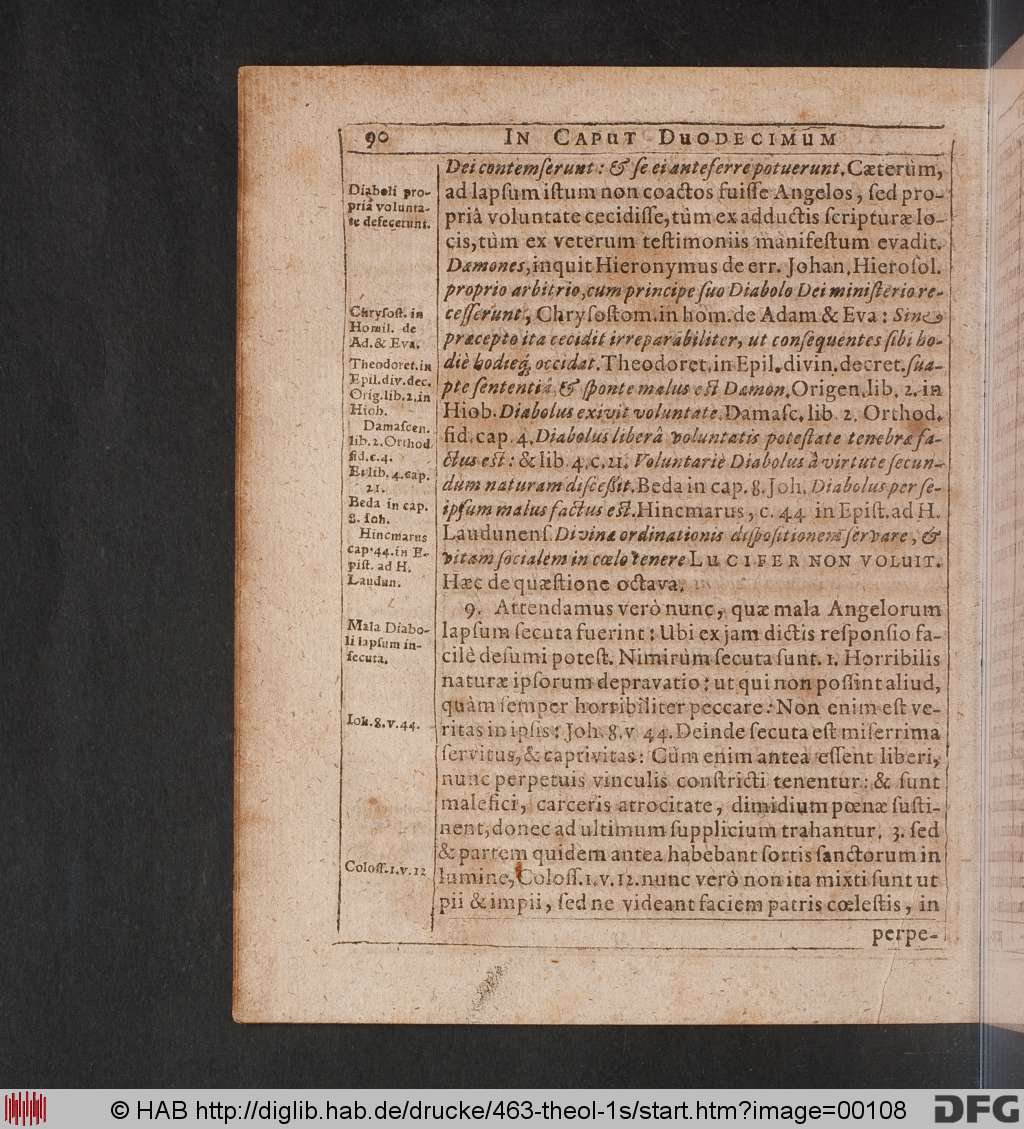 90 IN CAPUT DUODECIMUM
Dei contemſerunt: & ſe ei anteferre potuerunt. Cæterùm,
ad lapſum iſtum non coactos fuiſſe Angelos, ſed pro-
priâ voluntate cecidiſſe, tùm ex adductis ſcripturæ lo-
cis, tùm ex veterum teſtimoniis manifeſtum evadit.
Dæmones, inquit Hieronymus de err. Johan. Hieroſol.
proprio arbitrio, cum principe ſuo Diabolo Dei miniſterio re-
ceſſerunt, Chryſoſtom. in hom. de Adam & Eva: Sine
præcepto ita cecidit irreparabiliter, ut conſequentes ſibi ho-
diè hodieq; occidat. Theodoret. in Epil. divin. decret. ſua-
pte ſententiâ & ſponte malus eſt Dæmon. Origen. lib. 2. in
Hiob. Diabolus exivit voluntate. Damaſc. lib. 2. Orthod.
fid. cap. 4. Diabolus liberâ voluntatis poteſtate tenebræ fa-
ctus eſt: & lib. 4. c. 21. Voluntariè Diabolus à virtute ſecun-
dùm naturam diſceſſit. Beda in cap. 8. Joh. Diabolus per ſe-
ipſum malus factus eſt. Hincmarus, c. 44 in Epiſt. ad H.
Laudunenſ. Divinæ ordinationis diſpoſitionem ſervare, &
vitam ſocialem in cœlo tenere LUCIFER NON VOLUIT.
Hæc de quæſtione octava.
9. Attendamus verò nunc, quæ mala Angelorum
lapſum ſecuta fuerint: Ubi ex jam dictis reſponſio fa-
cilè deſumi poteſt. Nimirùm ſecuta ſunt. 1. Horribilis
naturæ ipſorum depravatio: ut qui non poſſint aliud,
quàm ſemper horribiliter peccare: Non enim eſt ve-
ritas in ipſis: Joh. 8. v 44. Deinde ſecuta eſt miſerrima
ſervitus, & captivitas: Cùm enim antea eſſent liberi,
nunc perpetuis vinculis conſtricti tenentur: & ſunt
malefici, carceris atrocitate, dimidium pœnæ ſuſti-
nent, donec ad ultimum ſupplicium trahantur. 3. ſed
& partem quidem antea habebant ſortis ſanctorum in
lumine, Coloſſ. 1. v. 12. nunc verò non ita mixti ſunt ut
pii & impii, ſed ne videant faciem patris cœleſtis, in
perpe-
Diaboli pro-
priâ volunta-
te defecerunt.
Chryſoſt. in
Homil. de
Ad. & Eva.
Theodoret. in
Epil. div. dec.
Orig. lib. 2. in
Hiob.
Damaſcen.
lib. 2. Orthod.
fid. c. 4.
Et lib. 4. cap.
21.
Beda in cap.
8. Ioh.
Hincmarus
cap. 44. in E-
piſt. ad H.
Laudun.
Mala Diabo-
li lapſum in-
ſecuta.
Ioh. 8. v. 44.
Coloſſ. 1. v. 12
© HAB http://diglib.hab.de/drucke/463-theol-1s/start.htm?image=00108
DFG